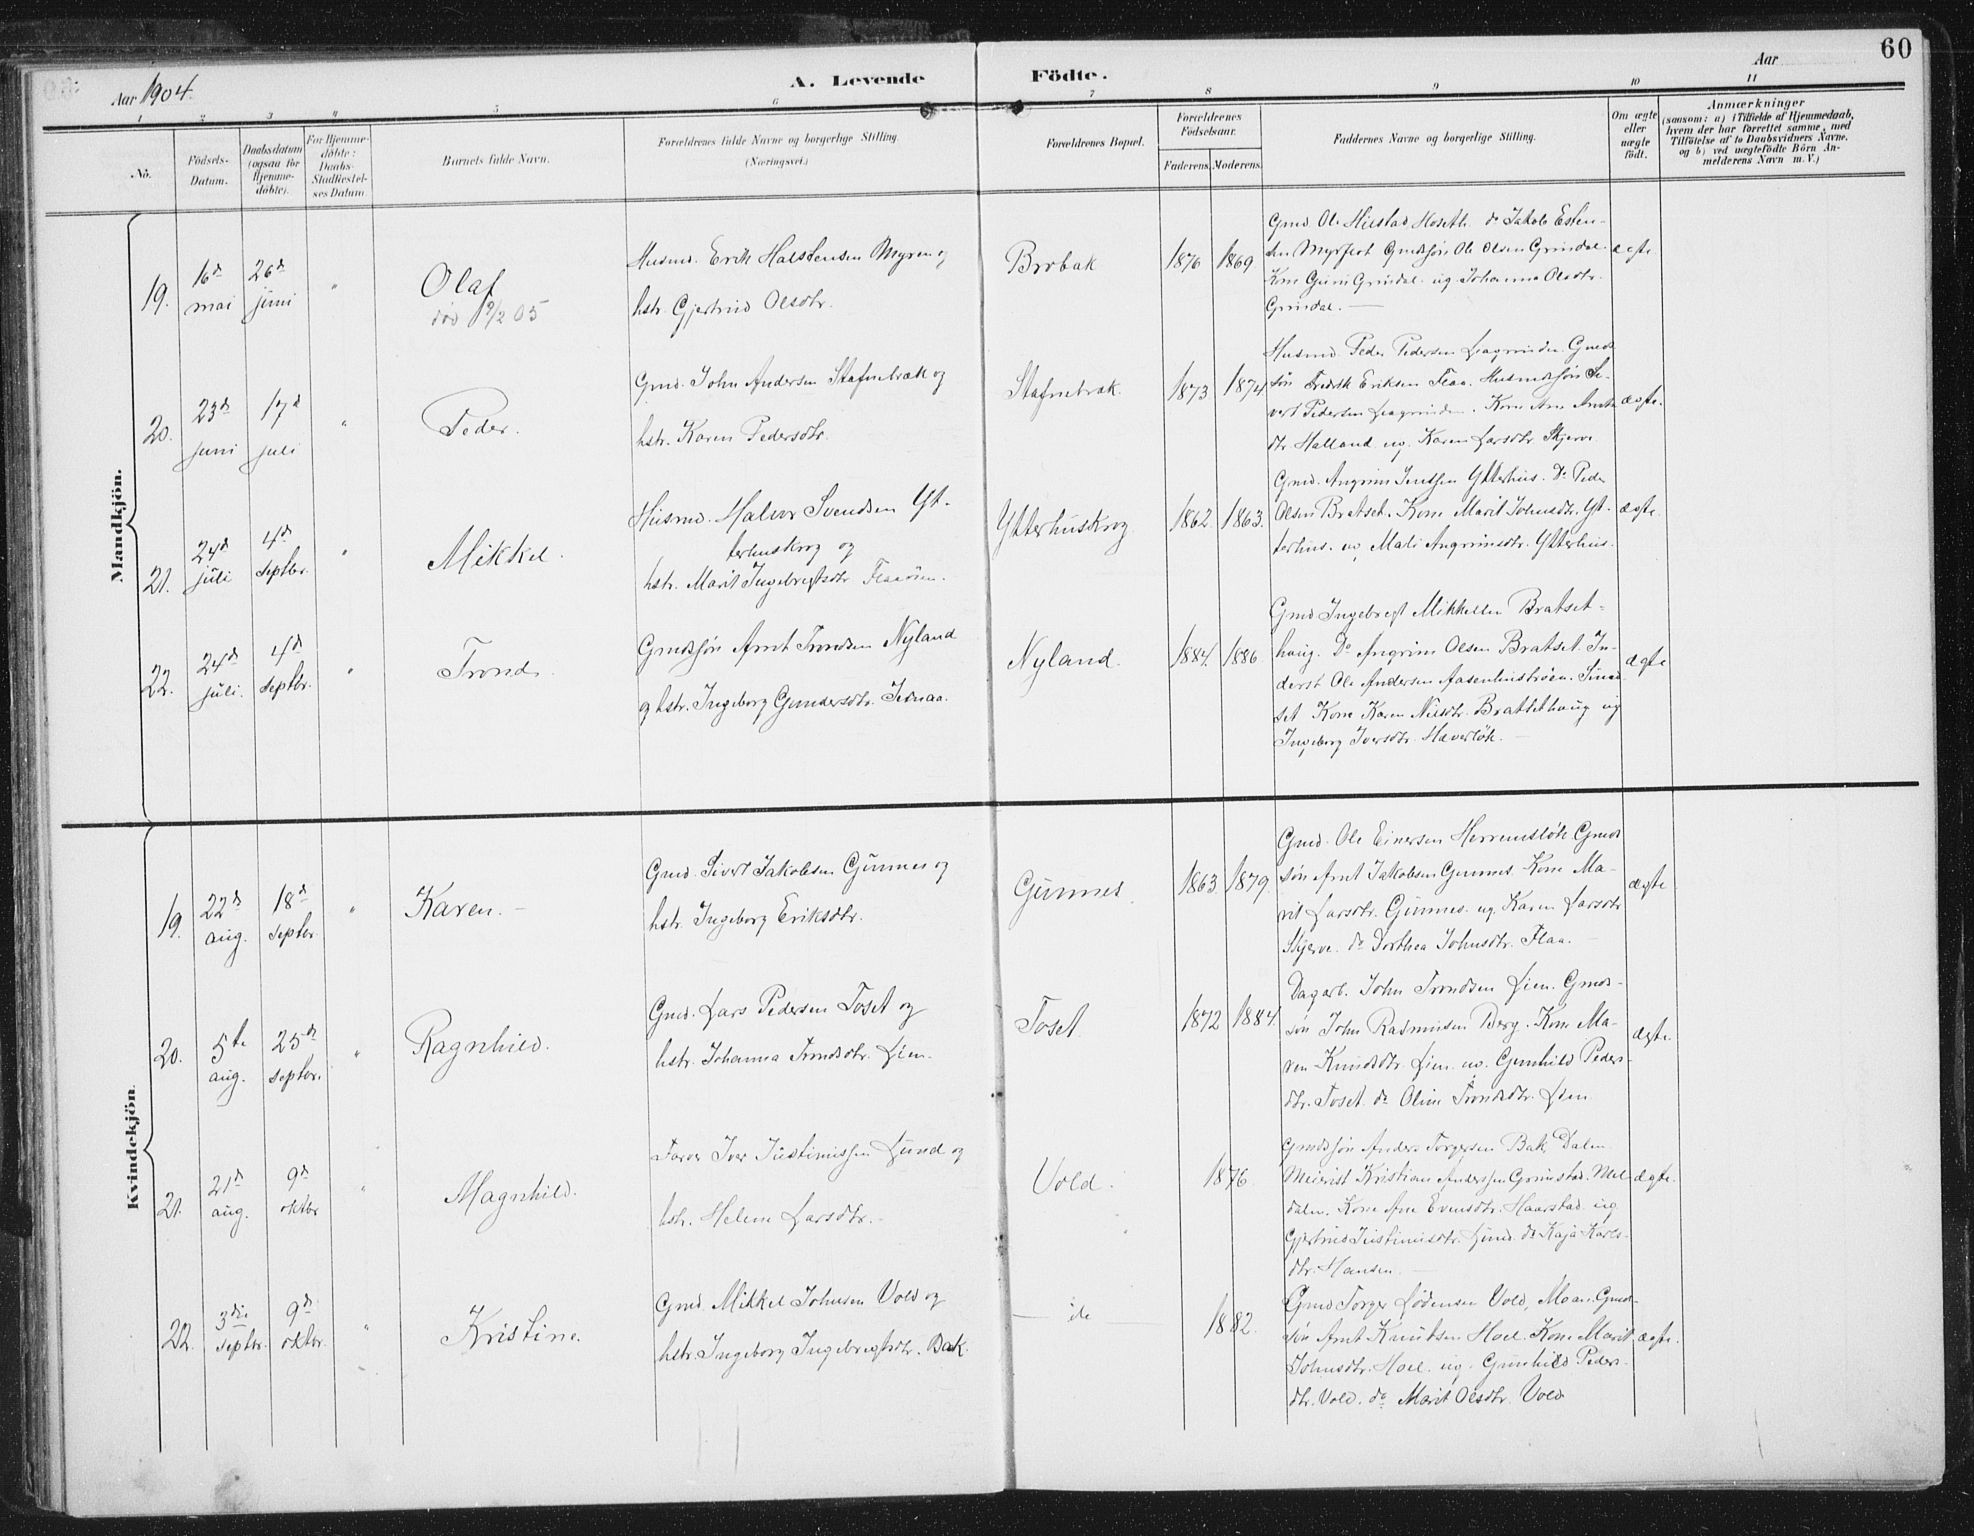 60
Aar 1904.
A. Levende Födte.
Aar
1 2 3 4 5 6 7 8 9 10 11
No.
Födsels-Datum.
Daabsdatum (ogsaa for Hjemme-döbte).
For Hjemme-döbte: Daabs Stadfæstel-ses Datum
Barnets fulde Navn.
Forældrenes fulde Navne og borgerlige Stilling.
(Næringsvei.)
Forældrenes Bopæl.
Forældrenes Födselsaar.
Faderens. Moderens.
Faddernes Navne og borgerlige Stilling.
Om ægte eller uægte födt.
Anmærkninger
(saasom: a) i Tilfælde af Hjemmedaab,
hvem der har forrettet samme, med
Tilföielse af to Daabsvidners Navne.
og b) ved uægtefödte Börn An-
melderens Navn m. V.)
Mandkjön.
19.
16d mai
26d juni
"
Olaf
död 9/2 05
Husmd. Erik Halstensen Myren og
hstr. Gjertrud Olsdtr.
Brobak
1876 1869
Gmd. Ole Hiustad Moseth. do Jakob Esten-
sen Myrfert Gmdssön Ole Olsen Grindal.
Kone Guru Grindal. og Johanna Olsdtr.
Grindal.
ægte
20.
23d juni
17d juli
"
Peder.
Gmd. John Andersen Stafnebræk og
hstr. Karen Pedersdtr.
Stafnebrak.
1873 1874
Husmd. Peder Pedersen Leagrinden. Gmds
sön Fredrik Eriksen Flaa. Husmdssön Si-
vert Pedersen Leagrinden. Kone Ane Arnts
dtr. Halland og. Karen Larsdtr. Skjerve.
ægte.
21.
24d juli
4d septbr.
"
Mikkel.
Husmd. Halvor Svendsen Yt-
terhuskrog og
hstr. Marit Ingebrigtsdtr. Flaaöien.
Ytterhuskrog
1862. 1863.
Gmd. Angrim Jensen Ytterhus. Do Peder
Olsen Bratset. Kone Marit Johnsdtr. Yt-
terhus. og Mali Angrimsdtr. Ytterhus.
ægte.
22.
24d juli.
4d septbr.
"
Trond.
Gmdssön Arnt Trondsen Nyland
og hstr. Ingeborg Gundersdtr. Jernaa.
Nyland.
1884. 1886
Gmd Ingebrigt Mikkelsen Bratset-
haug. Do Angrim Olsen Bratset. In-
derst Ole Andersen Aasenhusbröen.
set Kone Karen Nilsdtr. Bratsethaug og
Ingeborg Iversdtr. Haverlök.
ægte
Kvindekjön.
19.
22d aug.
18d septbr.
"
Karen.
Gmd. Sivert Jakobsen Gunnes og
hstr. Ingeborg Eriksdtr.
Gunnes.
1863 1879.
Gmd. Ole Einersen Herremslök Gmds
sön Arnt Jakobsen Gunnes. Kone Ma-
rit Larsdtr. Gunnes. og. Karen Larsdtr
Skjerve. do Dorthea Johnsdtr. Flaa.
ægte
20.
5te aug.
25d septbr.
"
Ragnhild.
Gmd. Lars Pedersen Toset og
hstr. Johanna Trondsdtr. Lien.
Toset.
1872 1884.
Dagarb. John Trondsen Lien. Gmds-
sön John Rasmusen Berg. Kone Ma-
ren Knudsdtr. Lien. og. Gunhild Peders-
dtr. Toset. do Oline Trondsdtr. Lien
ægte.
21.
21d aug.
9d oktbr
"
Magnhild.
Farver Iver Justinussen Lund og
hstr. Helene Larsdtr.
Vold.
1876.
Gmdssön Anders Torgersen Bak, Dalen
Meierist Kristian Anderssen Grimstad. Mel-
dalen. Kone Ane Evensdtr. Haarstad. og
Gjertrud Justinusdtr. Lund. do Kaja Karls-
dtr. Hansen.
ægte.
22.
3die septbr.
9d oktbr.
"
Kristine.
Gmd. Mikkel Johnsen Vold og
hstr. Ingeborg Ingebrigtsdtr. Bak.
— do —
1882.
Gmd Torger Lödensen Vold, Moan. Gmds-
sön Arnt Knutsen Hoel. Kone Marit
Johnsdtr. Hoel. og. Gunhild Peders-
dtr. Vold. do Marit Olsdtr. Vold
ægte.